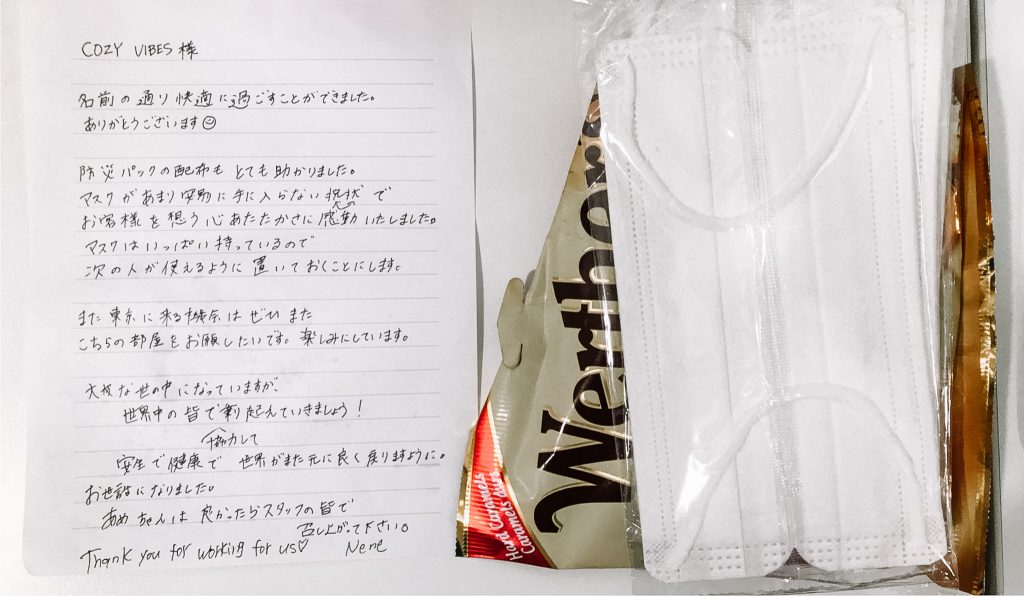 COZY VIBES 様
名前の通り快適に過ごすことができました。
ありがとうございます☺
防災パックの配布もとても助かりました。
マスクがあまり容易に手に入らない況状で
お客様を想う心あたたかさに感動いたしました。
マスクはいっぱい持っているので
次の人が使えるように置いておくことにします。
また東京に来る機会はぜひまた
こちらの部屋をお願したいです。楽しみにしています。
大変な世の中になっていますが、
世界中の皆で乗り越えていきましょう!
協力して
安全で健康で 世界がまた元に良く戻りますように。
お世話になりました。
あめちゃんは良かったらスタッフの皆で
召し上がって下さい。
Thank you for working for us♡ Nene
Werther's
Hard Caramels
Caramels durs